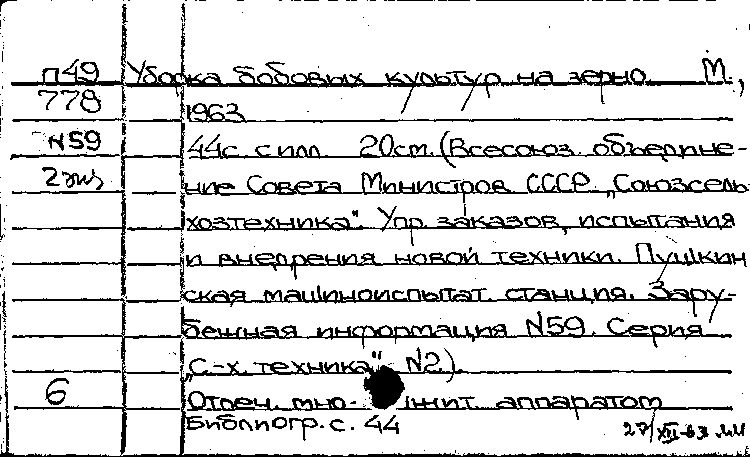 п49 Уборка бобовых культур на зерно М.,
778 1963
N59 44с. с илл 20см. (Всесоюз. объедине-
2 экз ние Совета Министров СССР „Союзсель
хозтехника". Упр. заказов, испытания
и внедрения новой техники. Пушкин
ская машиноиспытат. станция. Зару-
бежная информация N59. Серия
„С.-х. техника" N2.)
6 Отпеч. мно- аппаратом
Библиогр. с. 44 27/XII-63